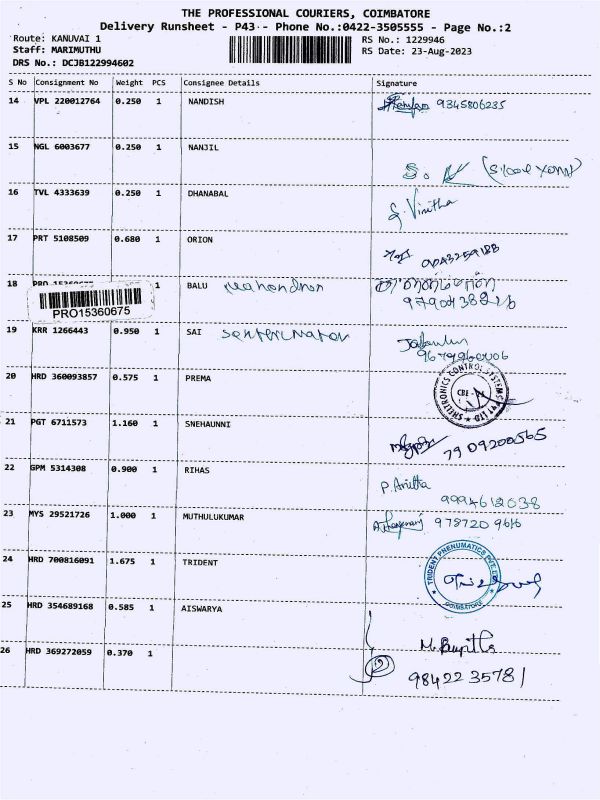 THE PROFESSIONAL COURIERS, COIMBATORE
Delivery Runsheet - P43 - Phone No.:0422-3505555 - Page No.:2
Route: KANUVAI 1
RS No.: 1229946
Staff: MARIMUTHU
RS Date: 23-Aug-2023
DRS No.: DCJB122994602
S No Consignment No Weight PCS Consignee Details Signature
14 VPL 220012764 0.250 1 NANDISH 9345806235
15 NGL 6003677 0.250 1 NANJIL
16 TVL 4333639 0.250 1 DHANABAL G. Vinitha
17 PRT 5108509 0.680 1 ORION
18 1 BALU
PRO15360675
19 KRR 1266443 0.950 1 SAI
20 HRD 360093857 0.575 1 PREMA
SHELTRONICS CONTROL SYSTEMS PVT LTD
21 PGT 6711573 1.160 1 SNEHAUNNI 7909200565
22 GPM 5314308 0.900 1 RIHAS P. Anitha
9994612038
23 MYS 29521726 1.000 1 MUTHULUKUMAR 9787209616
24 HRD 700816091 1.675 1 TRIDENT
TRIDENT PNEUMATICS PVT. LTD
COIMBATORE
25 HRD 354689168 0.585 1 AISWARYA
26 HRD 369272059 0.370 1
9842235781